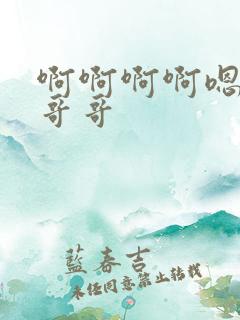 啊啊啊啊嗯
哥哥
蓝春吉
未经同意禁止转载